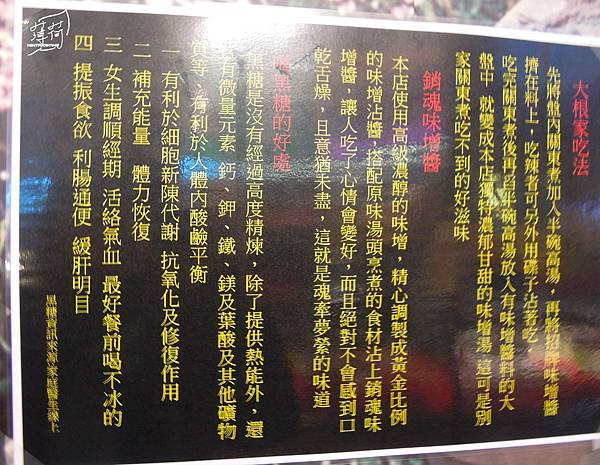 大根家吃法
先將盤內關東煮加入半碗高湯，再將招牌味增醬
擠在料上，吃辣者可另外用碟子沾著吃，
吃完關東煮後再舀半碗高湯放入有味增醬料的大
盤中 就變成本店獨特濃郁甘甜的味增湯 這可是別
家關東煮吃不到的好滋味
銷魂味增醬
本店使用高級濃醇的味增，精心調製成黃金比例
的味增沾醬，搭配原味湯頭烹煮的食材沾上銷魂味
增醬，讓人吃了心情會變好，而且絕對不會感到口
乾舌燥，且意猶未盡，這就是魂牽夢縈的味道
喝黑糖的好處
黑糖是沒有經過高度精煉，除了提供熱能外，還
有微量元素 鈣、鉀、鐵、鎂及葉酸及其他礦物
質等，有利於人體內酸鹼平衡
一 有利於細胞新陳代謝 抗氧化及修復作用
二 補充能量 體力恢復
三 女生調順經期 活絡氣血 最好餐前喝不冰的
四 提振食欲 利腸通便 緩肝明目
黑糖資訊來源家庭醫生線上